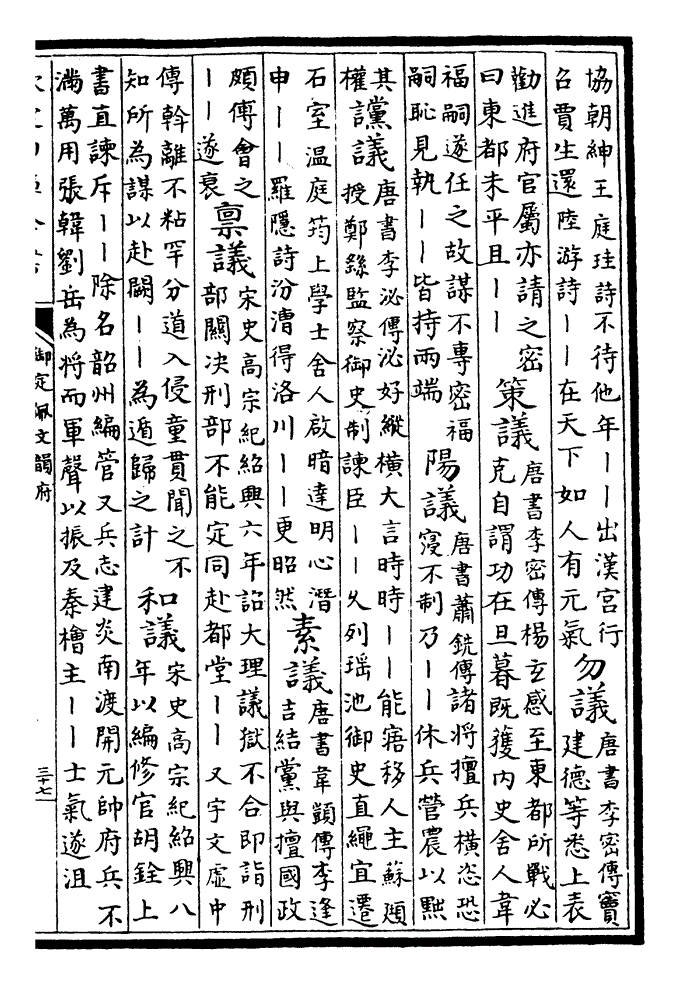 協朝紳王庭珪詩不待他年丨丨出漢宫行
召賈生還陸游詩丨丨在天下如人有元氣
勿議
唐書李密傳竇
建德等悉上表
勸進府官屬亦請之密
曰東都未平且丨丨
策議
唐書李密傳楊玄感至東都所戰必
克自謂功在旦暮既獲内史舍人韋
福嗣遂任之故謀不專密福
嗣恥見執丨丨皆持兩端
陽議
唐書蕭銑傳諸將擅兵横恣恐
寖不制乃丨丨休兵營農以黜
其
權
讜議
唐書李泌傳泌好縱横大言時時丨丨能寤移人主蘇頲
授鄭繇監察御史制諫臣丨丨乆列瑶池御史直繩宜遷
石室温庭筠上學士舍人啟暗達明心潛
申丨丨羅隱詩汾漕得洛川丨丨更昭然
素議
唐書韋顗傳李逢
吉結黨與擅國政
頗傳會之
丨丨遂衰
禀議
宋史高宗紀紹興六年詔大理議獄不合即詣刑
部關决刑部不能定同赴都堂丨丨又宇文虛中
傳斡離不粘罕分道入侵童貫聞之不
知所為謀以赴闕丨丨為遁歸之計
和議
宋史高宗紀紹興八
年以編修官胡銓上
書直諫斥丨丨除名韶州編管又兵志建炎南渡開元帥府兵不
滿萬用張韓劉岳為將而軍聲以振及秦檜主丨丨士氣遂沮
御定佩文韻府
三十七